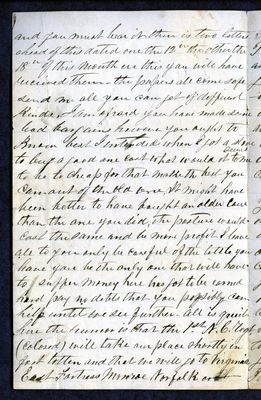 and you must hear it there is two letters
ahead of this dated one the 12th the other the
18th of this Month ere this you will have
received them - the papers all come safe
send me all you can get of different
kinds. I am afraid you have made some
bad bargains however you ought to
Know best I intended when I got a stove
to buy a good one cast what would it to me
to be to cheap for that made the bed you
Cow out of the old one. It might have
been better to have bought an older cow
than the one you did, the pasture would
cost the same and be more profit I leave
all to you only be careful of the little you
have you be the only one that will have
to suffer Money here has got to be earned
hard pay no debts that you possibly can
help until we see further - all is quiet
here the rumor is that the 1st N.C. Regt
(colored) will take our place shortly in
fort totten and that we will go to Virginia
East Fortress Monroe Norfolk or